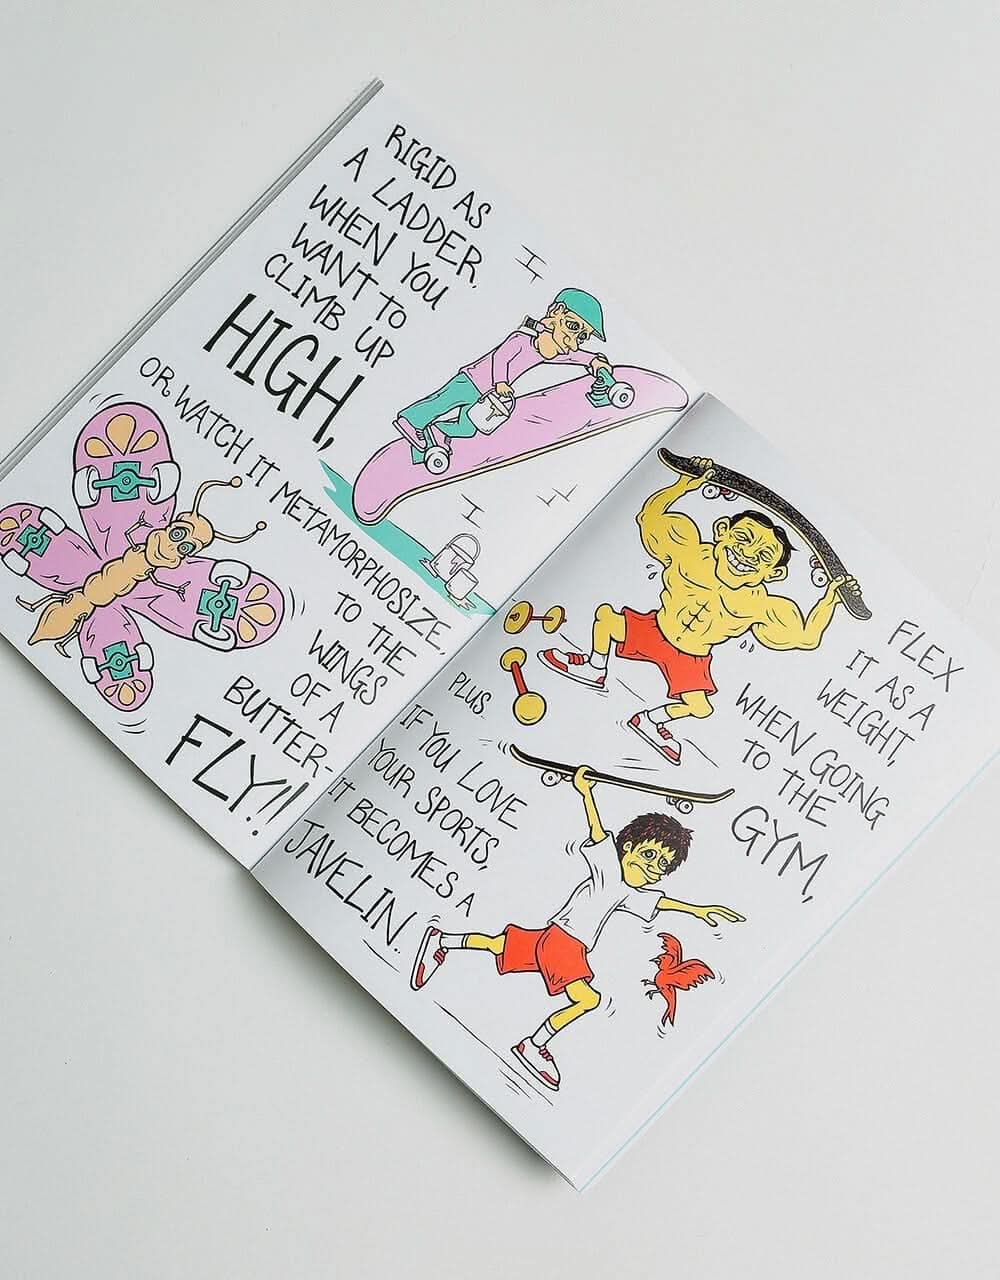 RIGID AS
A LADDER,
WHEN YOU
WANT TO
CLIMB UP
HIGH,
OR WATCH IT METAMORPHOSIZE,
TO THE
WINGS
OF A
BUTTER-
FLY!!
FLEX
IT AS A
WEIGHT,
WHEN GOING
TO THE
GYM,
PLUS
IF YOU LOVE
YOUR SPORTS,
IT BECOMES A
JAVELIN..